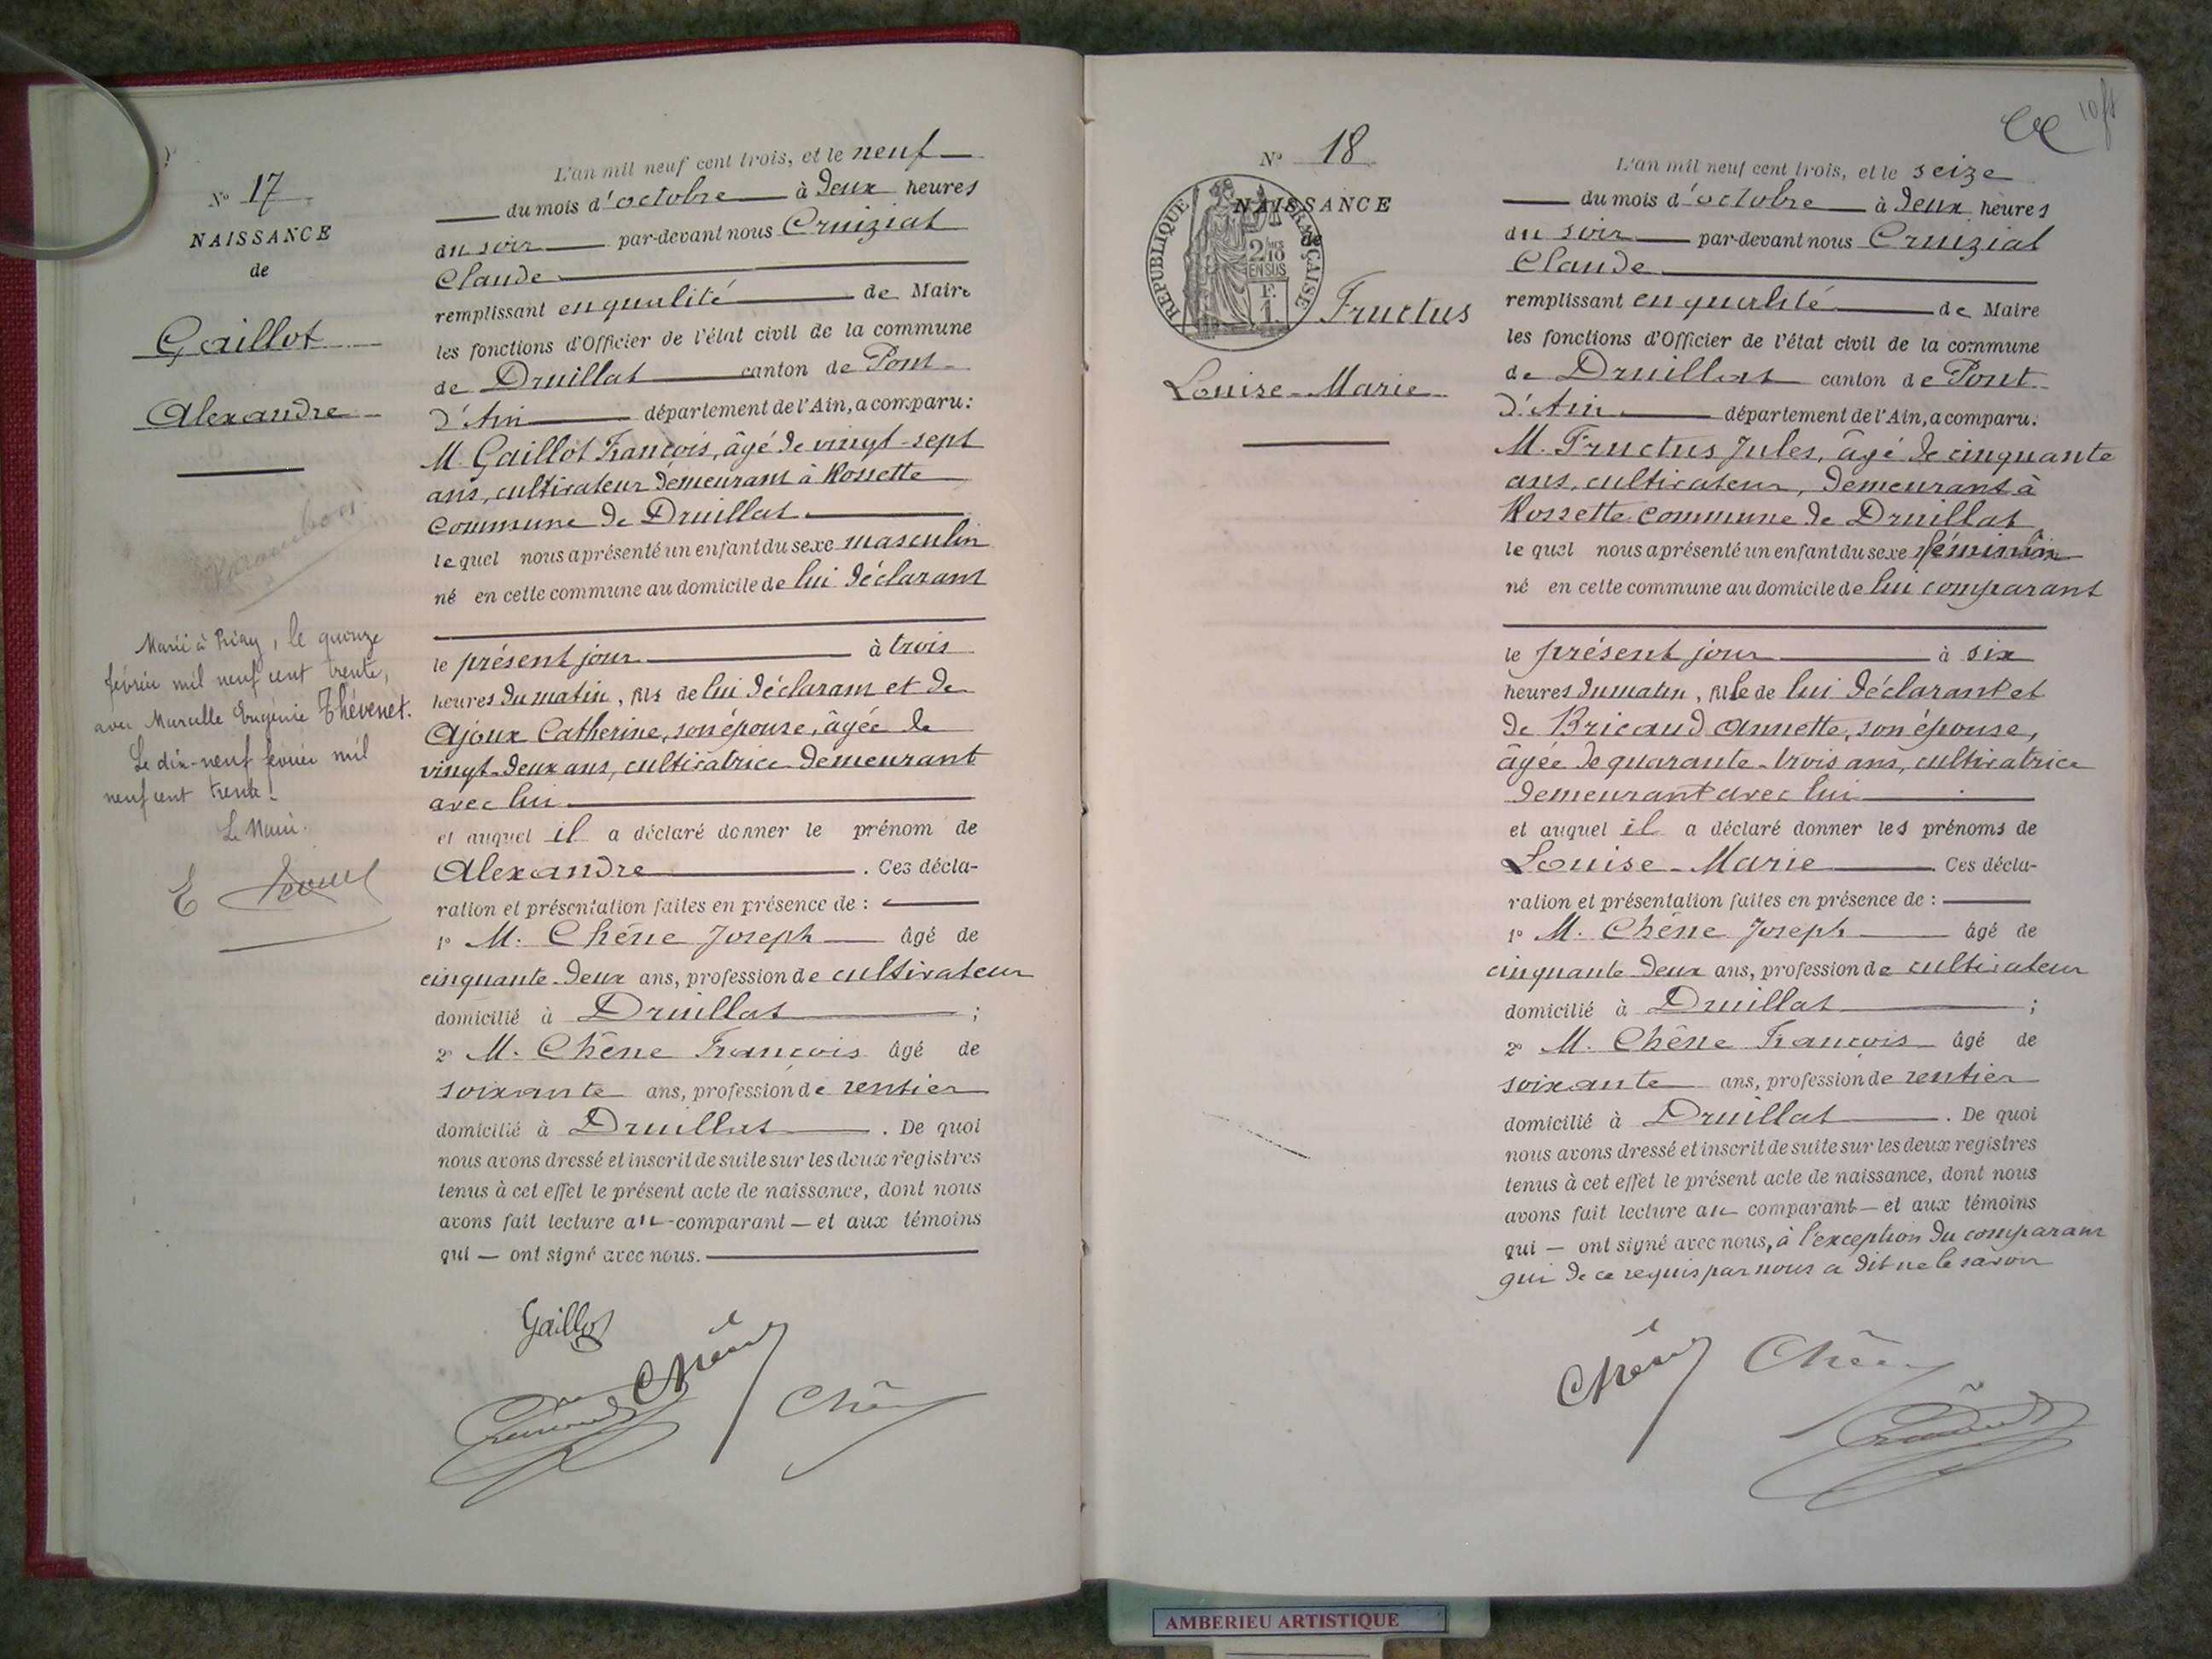 N° 17
NAISSANCE
de
Gaillot
Alexandre
Marié à Priay, le quinze
février mil neuf cent trente,
avec Marcelle Eugénie Thévenet.
Le dix-neuf février mil
neuf cent trente.
Le Maire.
L'an mil neuf cent trois, et le neuf
du mois d'octobre à deux heures
du soir par-devant nous Cruiziat
Claude
remplissant en qualité de Maire
les fonctions d'Officier de l'état civil de la commune
de Druillat canton de Pont-
d'Ain département de l'Ain, a comparu:
M. Gaillot François, âgé de vingt-sept
ans, cultivateur demeurant à Rossette
commune de Druillat
lequel nous a présenté un enfant du sexe masculin
né en cette commune au domicile de lui déclarant
le présent jour à trois
heures du matin, fils de lui déclarant et de
Ajoux Catherine, son épouse, âgée de
vingt-deux ans, cultivatrice demeurant
avec lui
et auquel il a déclaré donner le prénom de
Alexandre. Ces décla-
ration et présentation faites en présence de :
1° M. Chêne Joseph âgé de
cinquante-deux ans, profession de cultivateur
domicilié à Druillat ;
2° M. Chêne François âgé de
soixante ans, profession de rentier
domicilié à Druillat. De quoi
nous avons dressé et inscrit de suite sur les deux registres
tenus à cet effet le présent acte de naissance, dont nous
avons fait lecture au comparant — et aux témoins
qui — ont signé avec nous.
Gaillot
Chêne
Chêne
N° 18
NAISSANCE
de
RÉPUBLIQUE FRANÇAISE
2/10
EN SUS
F.
1
Fructus
Louise-Marie
L'an mil neuf cent trois, et le seize
du mois d'octobre à deux heures
du soir par-devant nous Cruiziat
Claude
remplissant en qualité de Maire
les fonctions d'Officier de l'état civil de la commune
de Druillat canton de Pont-
d'Ain département de l'Ain, a comparu:
M. Fructus Jules, âgé de cinquante
ans, cultivateur, demeurant à
Rossette commune de Druillat
lequel nous a présenté un enfant du sexe féminin
né en cette commune au domicile de lui comparant
le présent jour à six
heures du matin, fille de lui déclarant et
de Bricaud Annette, son épouse,
âgée de quarante-trois ans, cultivatrice
demeurant avec lui
et auquel il a déclaré donner les prénoms de
Louise-Marie Ces décla-
ration et présentation faites en présence de :
1° M. Chêne Joseph âgé de
cinquante deux ans, profession de cultivateur
domicilié à Druillat ;
2° M. Chêne François âgé de
soixante ans, profession de rentier
domicilié à Druillat. De quoi
nous avons dressé et inscrit de suite sur les deux registres
tenus à cet effet le présent acte de naissance, dont nous
avons fait lecture au comparant — et aux témoins
qui — ont signé avec nous, à l'exception du comparant
qui de ce requis par nous a dit ne le savoir
Chêne
Chêne
AMBERIEU ARTISTIQUE